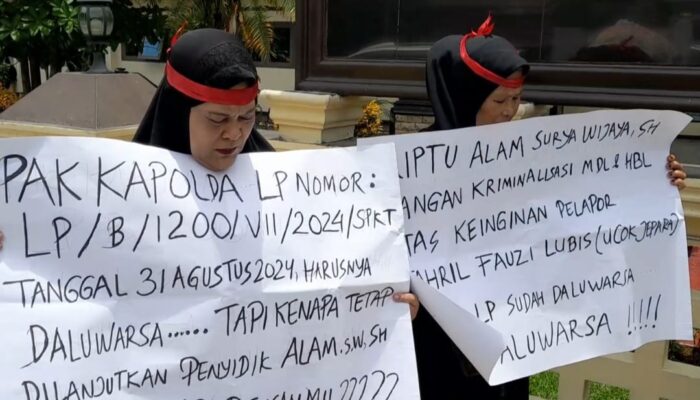 PAK KAPOLDA LP NOMOR:
LP/B/1200/VII/2024/SPKT
TANGGAL 31 AGUSTUS 2024, HARUSNYA
DALUWARSA...... TAPI KENAPA TETAP
DILANJUTKAN PENYIDIK ALAM.S.W,SH
?????
RIPTU ALAM SURYA WIJAYA, SH
ANGAN KRIMINALISASI MDL & HBL
TAS KEINGINAN PELAPOR
AHRIL FAUZI LUBIS (UCOK JEPARA)
LP SUDAH DALUWARSA
ALUWARSA !!!!!